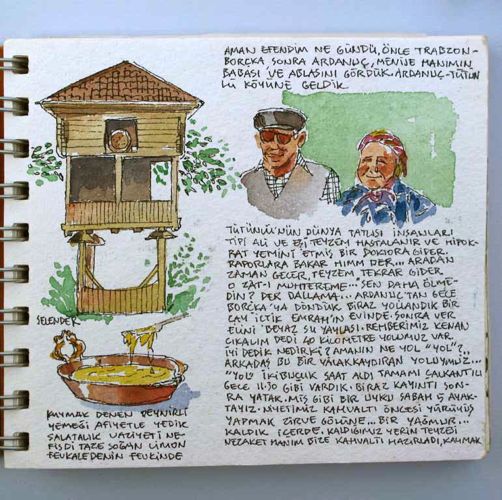 AMAN EFENDİM NE GÜNDÜ, ÖNCE TRABZON-
BORÇKA SONRA ARDANUÇ, MENİJE HANIMIN
BABASI VE ABLASINI GÖRDÜK. ARDANUÇ-TÜTÜN
LÜ KÖYÜNE GELDİK
TÜTÜNLÜ'NÜN DÜNYA TATLISI İNSANLARI
TİPİ ALİ VE EŞİ TEYZEM HASTALANIR VE HİPOK-
RAT YEMİNİ ETMİŞ BİR DOKTORA GİDER.
RAPORLARA BAKAR HIMM DER... ARADAN
ZAMAN GEÇER, TEYZEM TEKRAR GİDER
O ZAT-I MUHTEREME... SEN DAHA ÖLME-
DİN? DER DALLAMA... ARDANUÇ'TAN GECE
BORÇKA'YA DÖNDÜK BİRAZ YOLLANDIK BİR
ÇAY İÇTİK EMRAH'IN EVİNDE. SONRA VER
ELİNİ BEYAZ SU YAYLASI. REHBERİMİZ KENAN
ÇIKALIM DEDİ 40 KİLOMETRE YOLUMUZ VAR.
İYİ DEDİK NEDİR Kİ? AMANIN NE YOL "YOL"?..
ARKADAŞ BU BİR YALAKKAYDIRAN YOLUYMUZ...
"YOL" İKİBUÇUK SAAT OLDU TAMAMI ÇALKANTILI
GECE 11.30 GİBİ VARDIK. BİRAZ KAYINTI SON-
RA YATAK. MİS GİBİ BİR UYKU SABAH 5 AYAK-
TAYIZ. NİYETİMİZ KAHVALTI ÖNCESİ YÜRÜYÜŞ
YAPMAK ZİRVE GÖLÜNE... BİR YAĞMUR...
KALDIK İÇERDE. KALDIĞIMIZ YERİN TEYZESİ
NEZAKET HANIM BİZE KAHVALTI HAZIRLADI, KAYMAK
SELENDER
KUYMAK DENEN PEYNİRLİ
YEMEĞİ AFİYETLE YEDİK
SALATALIK VAZİYETİ NE-
FİSDİ TAZE SOĞAN LİMON
FEVKALEDENİN FEVKİNDE